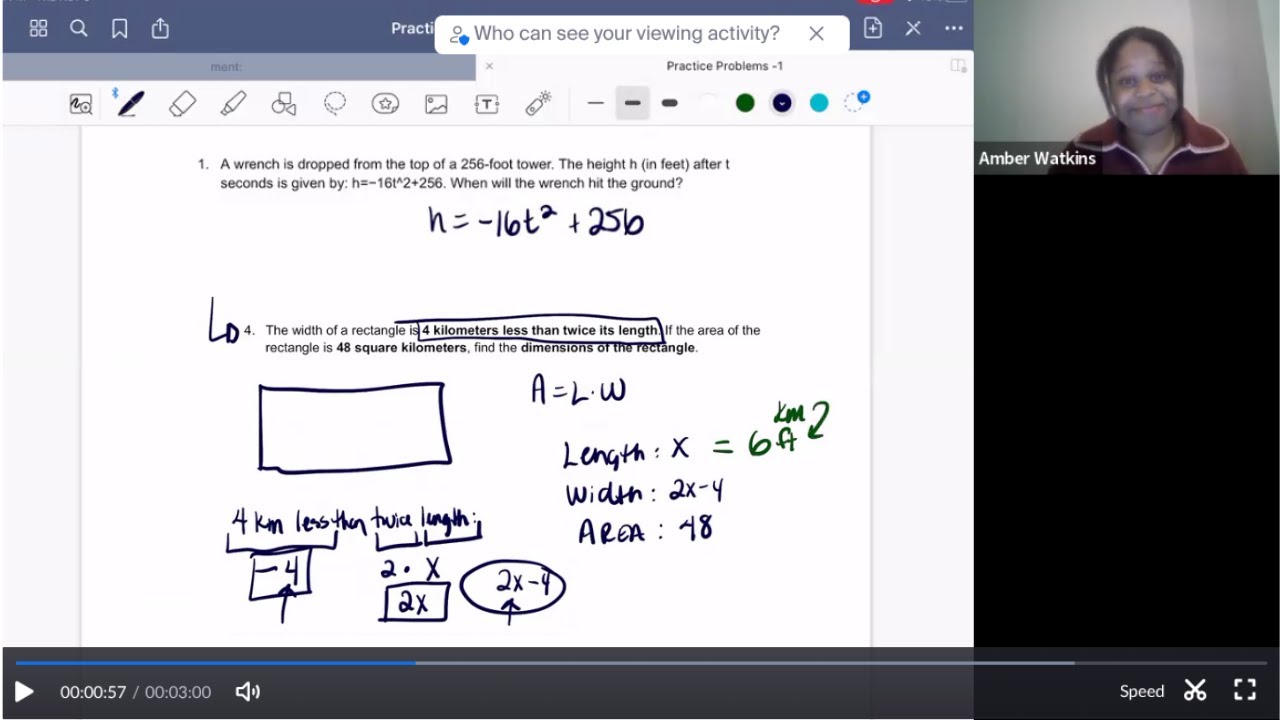 Practi
Who can see your viewing activity?
ment:
Practice Problems -1
1. A wrench is dropped from the top of a 256-foot tower. The height h (in feet) after t
seconds is given by: h=−16t^2+256. When will the wrench hit the ground?
h = -16t² + 256
4. The width of a rectangle is 4 kilometers less than twice its length. If the area of the
rectangle is 48 square kilometers, find the dimensions of the rectangle.
A = L · W
km
Length : x = 6 ft
Width : 2x-4
AREA : 48
4 km less than twice length:
-4
2 · x
2x
2x-4
Amber Watkins
00:00:57 / 00:03:00
Speed